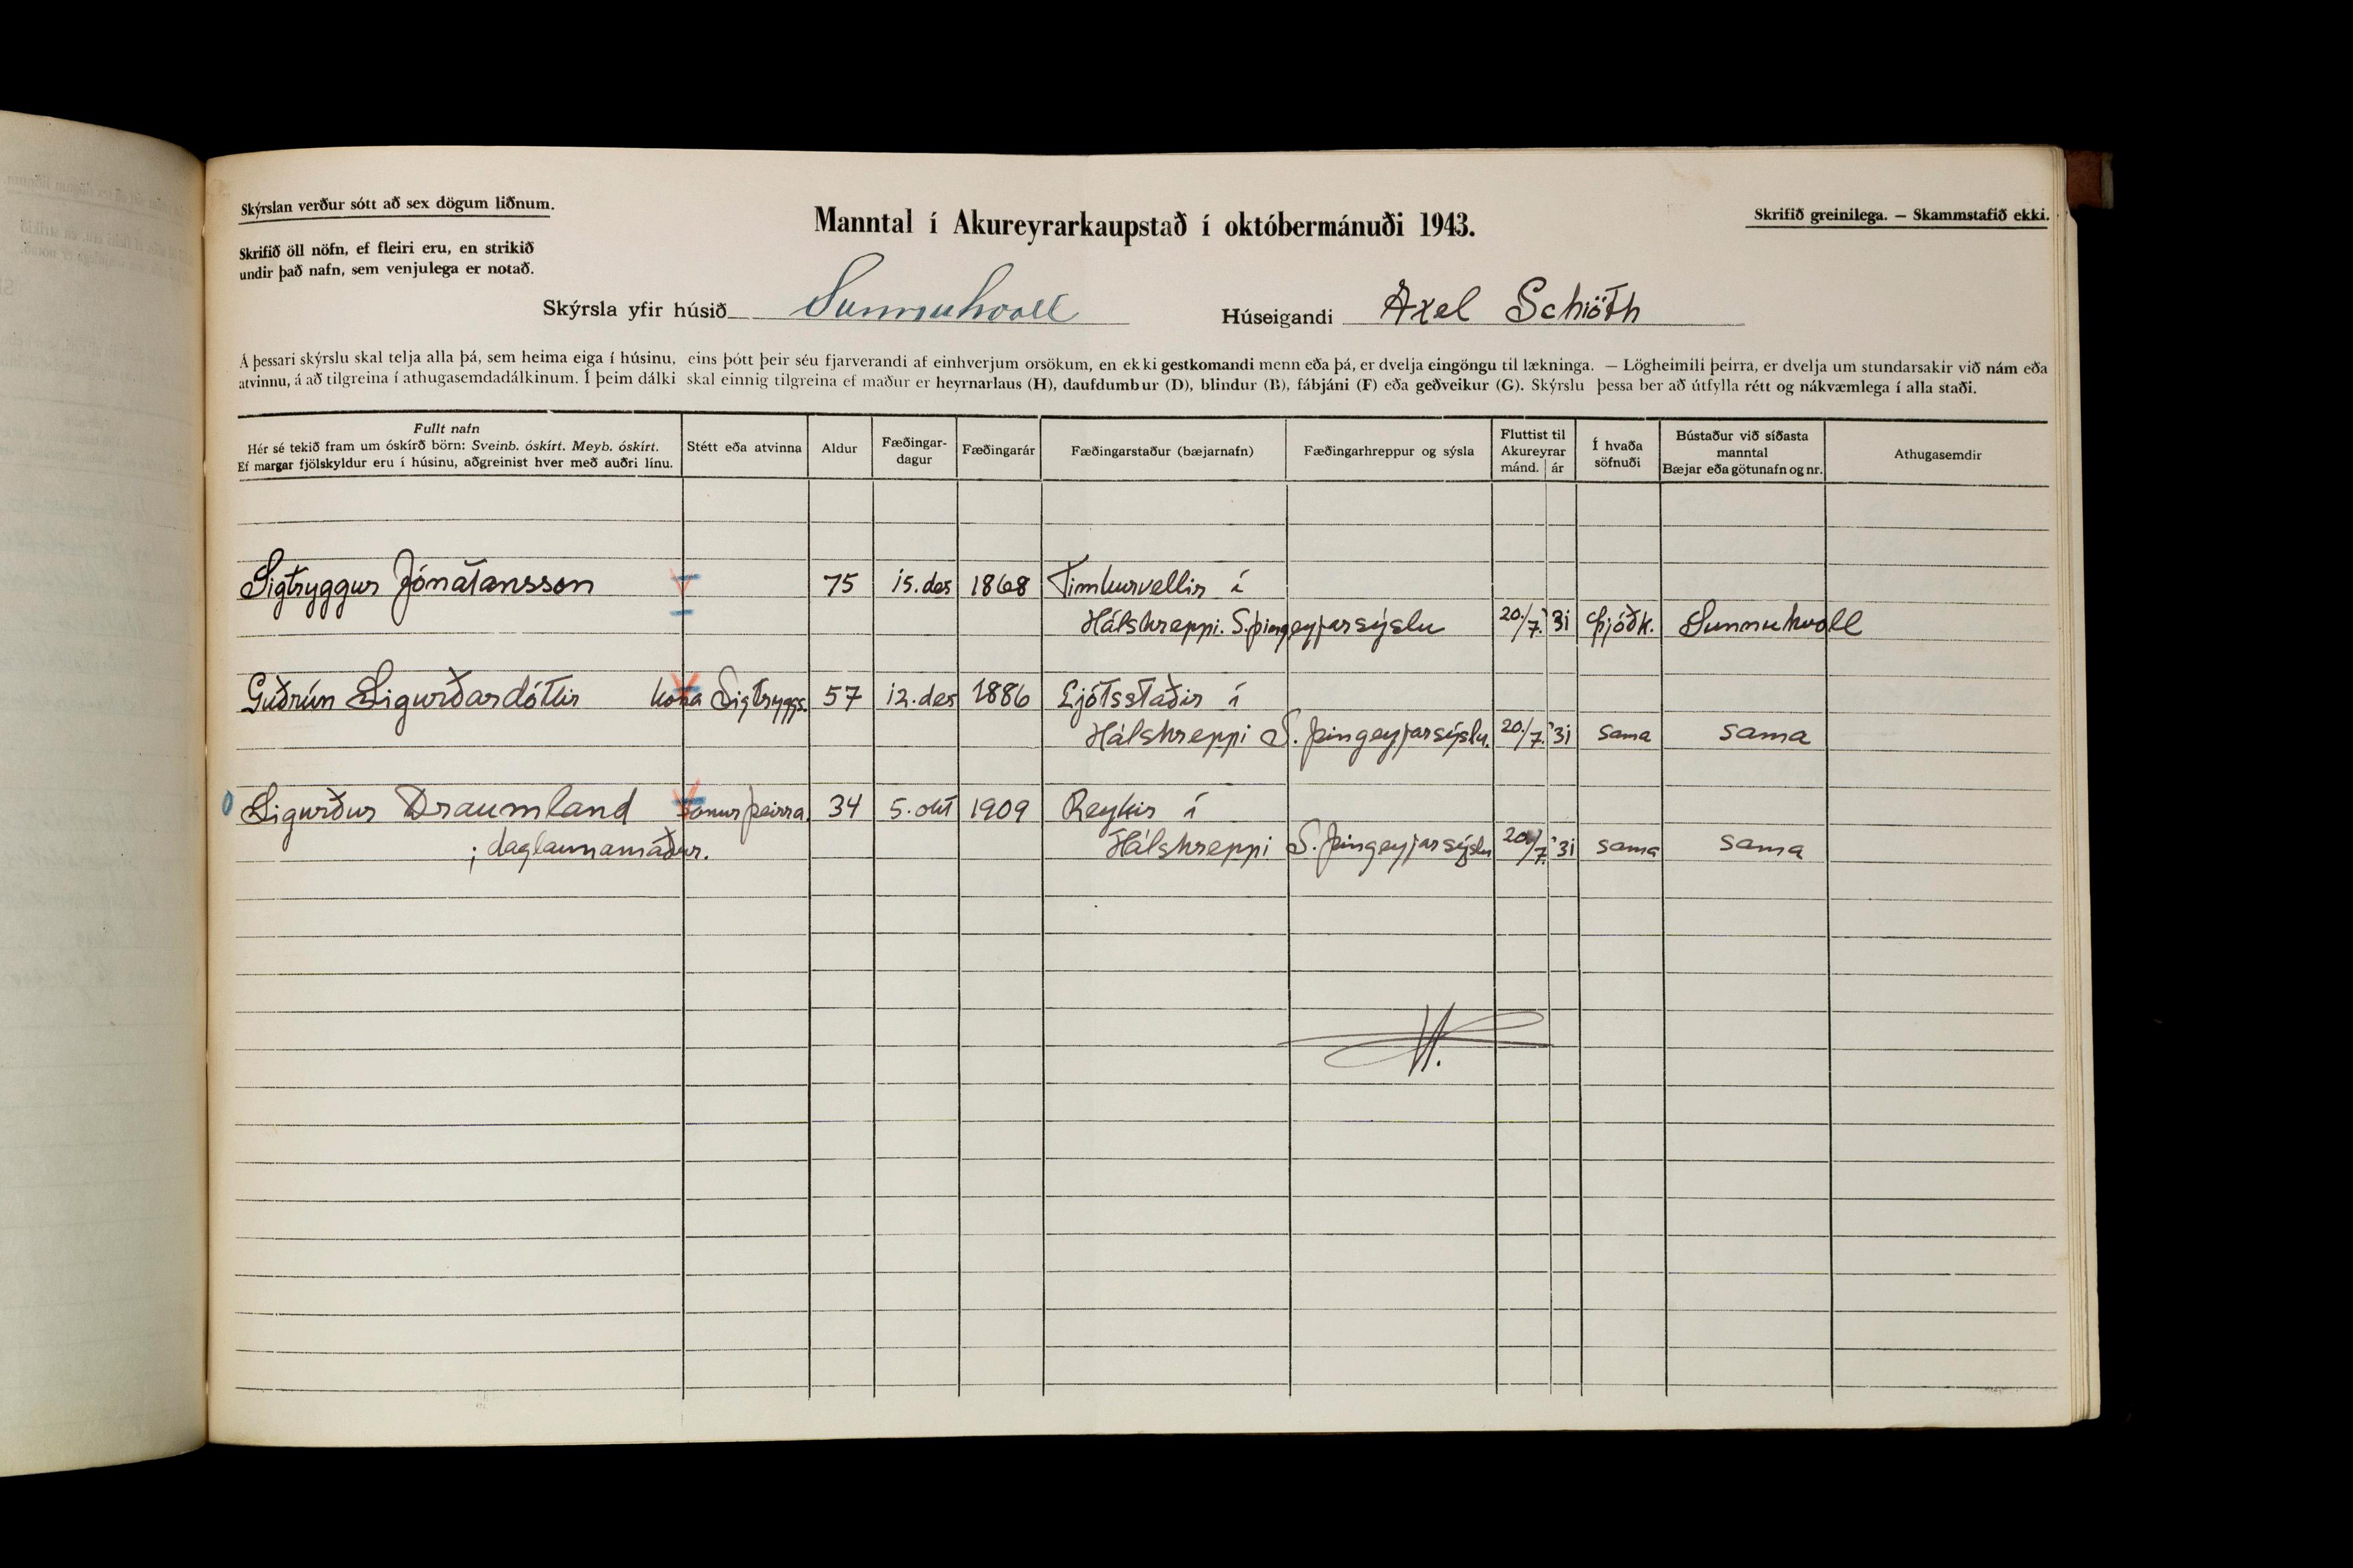 Skýrslan verður sótt að sex dögum liðnum.
Skrifið öll nöfn, ef fleiri eru, en strikið
undir það nafn, sem venjulega er notað.
Manntal í Akureyrarkaupstað í októbermánuði 1943.
Skrifið greinilega. — Skammstafið ekki.
Skýrsla yfir húsið Sunnuhvoll Húseigandi Axel Schiöth
Á þessari skýrslu skal telja alla þá, sem heima eiga í húsinu, eins þótt þeir séu fjarverandi af einhverjum orsökum, en ekki gestkomandi menn eða þá, er dvelja eingöngu til lækninga. — Lögheimili þeirra, er dvelja um stundarsakir við nám eða
atvinnu, á að tilgreina í athugasemdadálkinum. Í þeim dálki skal einnig tilgreina ef maður er heyrnarlaus (H), daufdumbur (D), blindur (B), fábjáni (F) eða geðveikur (G). Skýrslu þessa ber að útfylla rétt og nákvæmlega í alla staði.
Fullt nafn
Hér sé tekið fram um óskírð börn: Sveinb. óskírt. Meyb. óskírt.
Ef margar fjölskyldur eru í húsinu, aðgreinist hver með auðri línu.
Stétt eða atvinna
Aldur
Fæðingar-
dagur
Fæðingarár
Fæðingarstaður (bæjarnafn)
Fæðingarhreppur og sýsla
Fluttist til
Akureyrar
mánd. ár
Í hvaða
söfnuði
Bústaður við síðasta
manntal
Bæjar eða götunafn og nr.
Athugasemdir
Sigtryggur Jónatansson 75 15. des 1868 Timburvellir í
Hálshreppi. S.þingeyjarsýslu 20./7. '31 þjóðk. Sunnuhvoll
Guðrún Sigurðardóttir kona Sigtryggs. 57 12. des 1886 Ljótsstaðir í
Hálshreppi S. þingeyjarsýslu. 20./7. '31 sama sama
Sigurður Draumland sonur þeirra. 34 5. okt 1909 Reykir í
; daglaunamaður. Hálshreppi S. þingeyjarsýslu 20/7. '31 sama sama